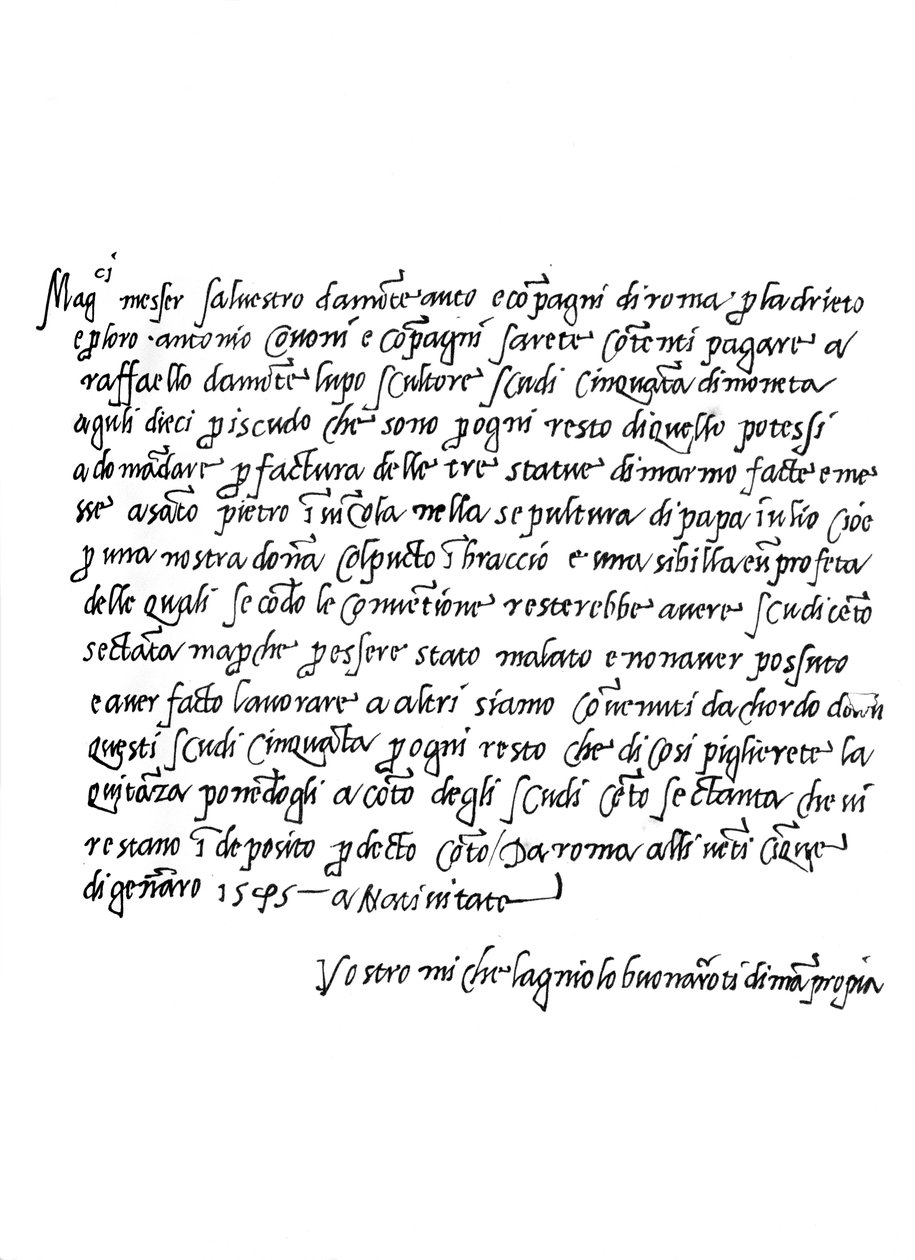 Mag^ci messer saluestro damōte auto e cōpagni di roma p la drieto
e p loro · antonio Cononi e cōpagni sarete cōtenti pagare a
raffaello damōte lupo scultore scudi cinquāta dimoneta
a guli dieci p iscudo che sono p ogni resto di quello potessi
adomādare p factura delle tre statue di marmo facte e me
sse a sāto pietro ī uīcola nella sepultura di papa iulio cioe
p una nostra donā col pucto ī braccio e una sibilla e ū profeta
delle quali secōdo le conuētione resterebbe auere scudi cēto
sectāta ma p che p essere stato malato e non auer possuto
e auer facto lauorare a altri siamo cōuenuti dachordo
questi scudi cinquāta p ogni resto che di cosi piglierete la
quitāza ponēdogli a cōto degli scudi cēto sectanta che ui
restano ī deposito p decto cōto / Da roma alli uēti cīque
di genāro 1545 — a Natiuitate
Vostro michelagniolo buonaroti di mā propia